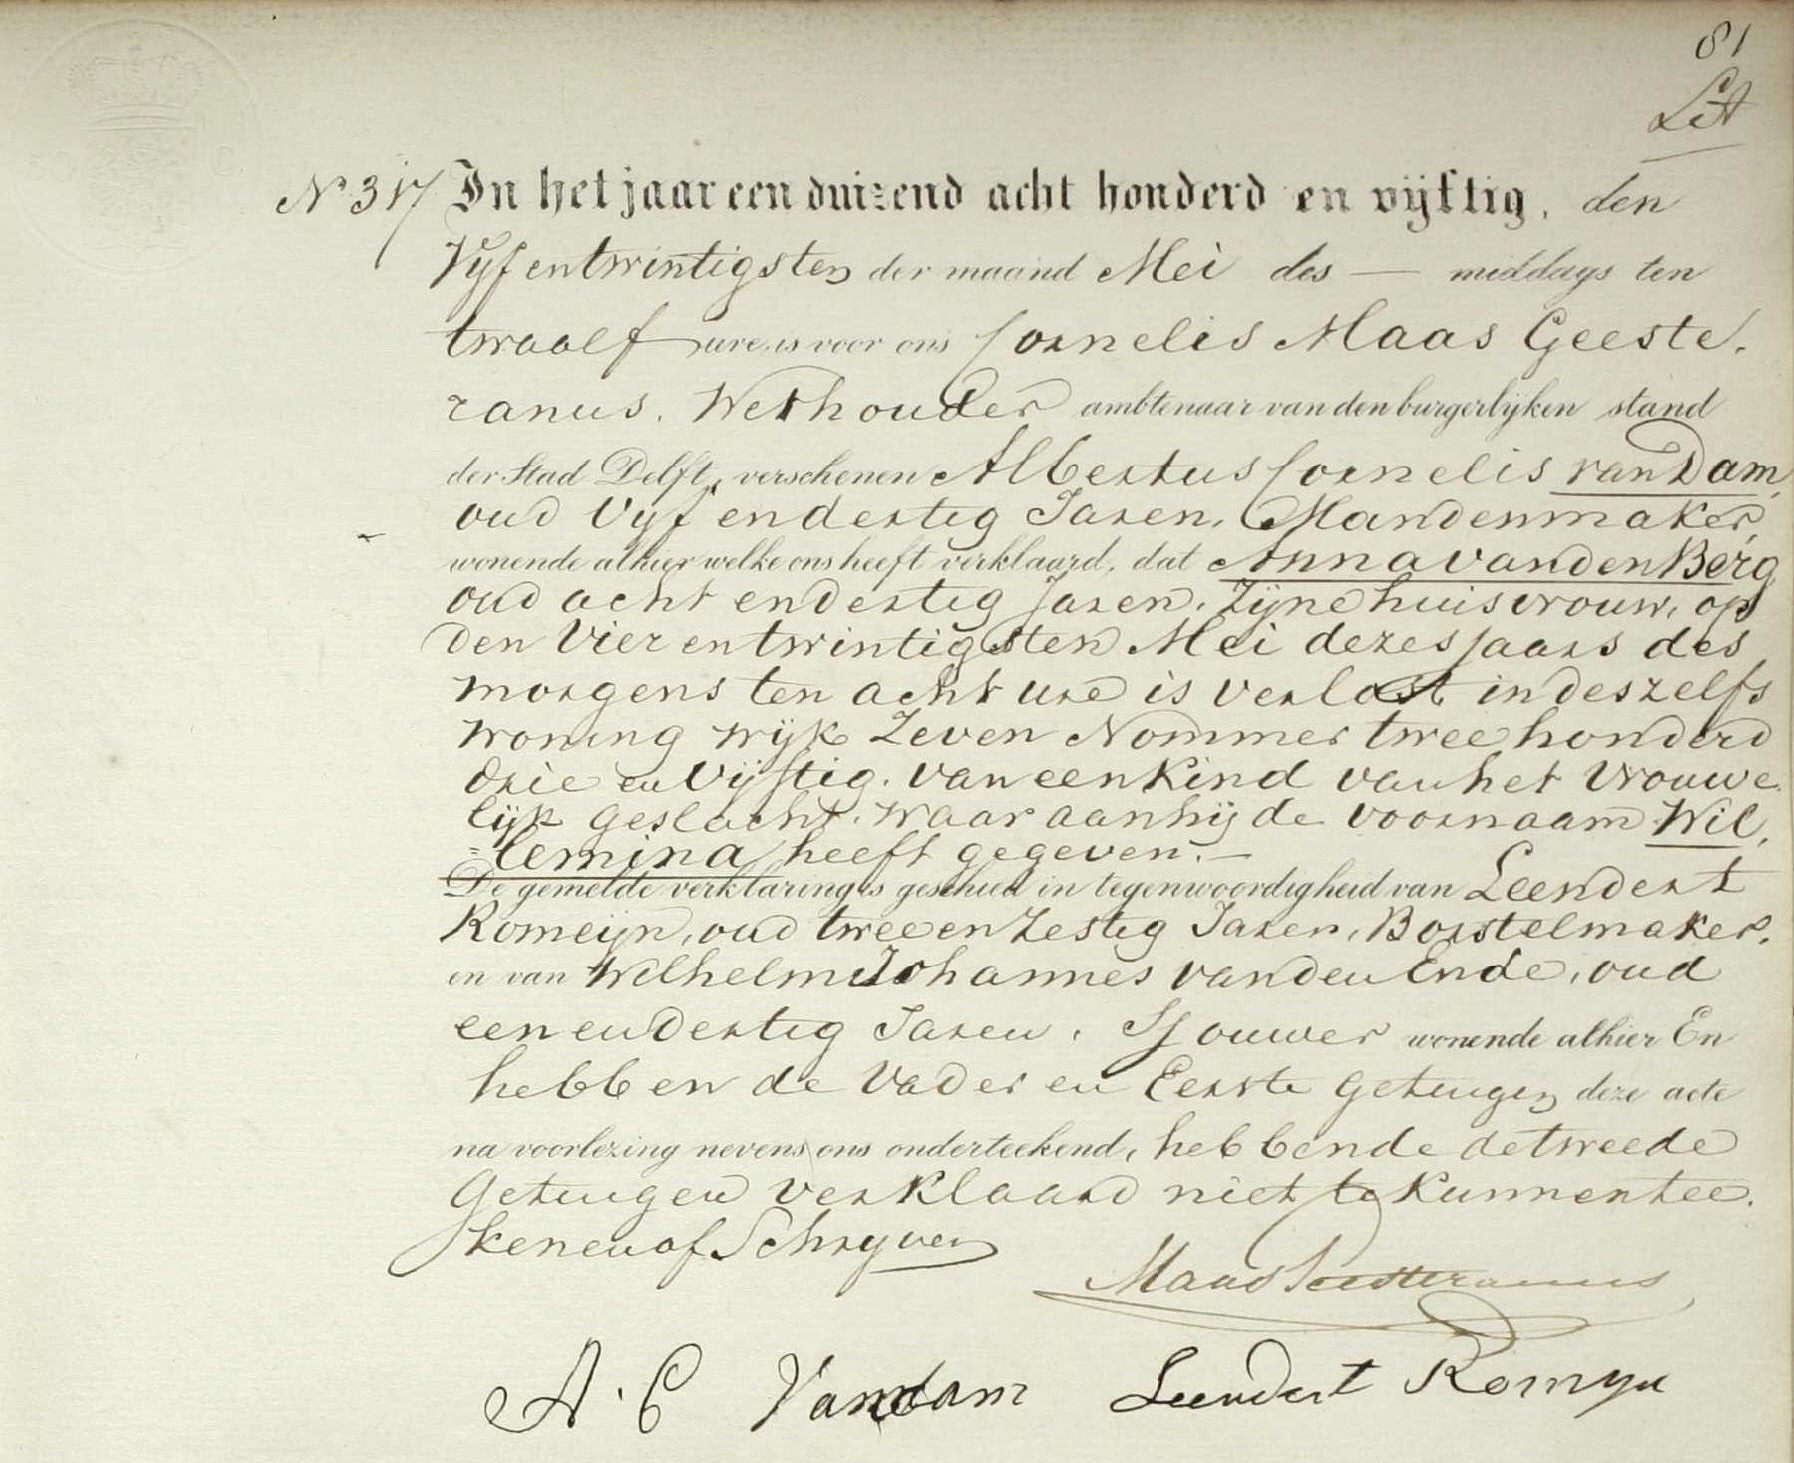 81
Lit A
No 317 In het jaar een duizend acht honderd en vijftig, den
Vyf en twintigsten der maand Mei des — middags ten
twaalf ure, is voor ons Cornelis Maas Geeste-
ranus. Wethouder ambtenaar van den burgerlijken stand
der Stad Delft, verschenen Albertus Cornelis van Dam,
oud Vyf en dertig Jaren, Mandenmaker,
wonende alhier welke ons heeft verklaard, dat Anna van den Berg
oud acht en dertig Jaren, Zijne huisvrouw, op
den Vier en twintigsten Mei dezes Jaars des
morgens ten acht ure is verlost in deszelfs
woning wijk Zeven Nommer twee honderd
drie en Vijftig. van een Kind van het Vrouwe-
lijk geslacht. waar aan hij de voornaam Wil-
=lemina heeft gegeven. —
De gemelde verklaring is geschied in tegenwoordigheid van Leendert
Romeijn, oud twee en Zestig Jaren, Borstelmaker.
en van Wilhelm Johannes van den Ende, oud
een en dertig Jaren, Sjouwer wonende alhier En
hebben de Vader en Eerste getuigen deze acte
na voorlezing nevens ons onderteekend, hebbende de tweede
Getuigen verklaard niet te Kunnen tee-
kenen of Schryven
Maas Geesteranus
A. C Van dam Leendert Romyn